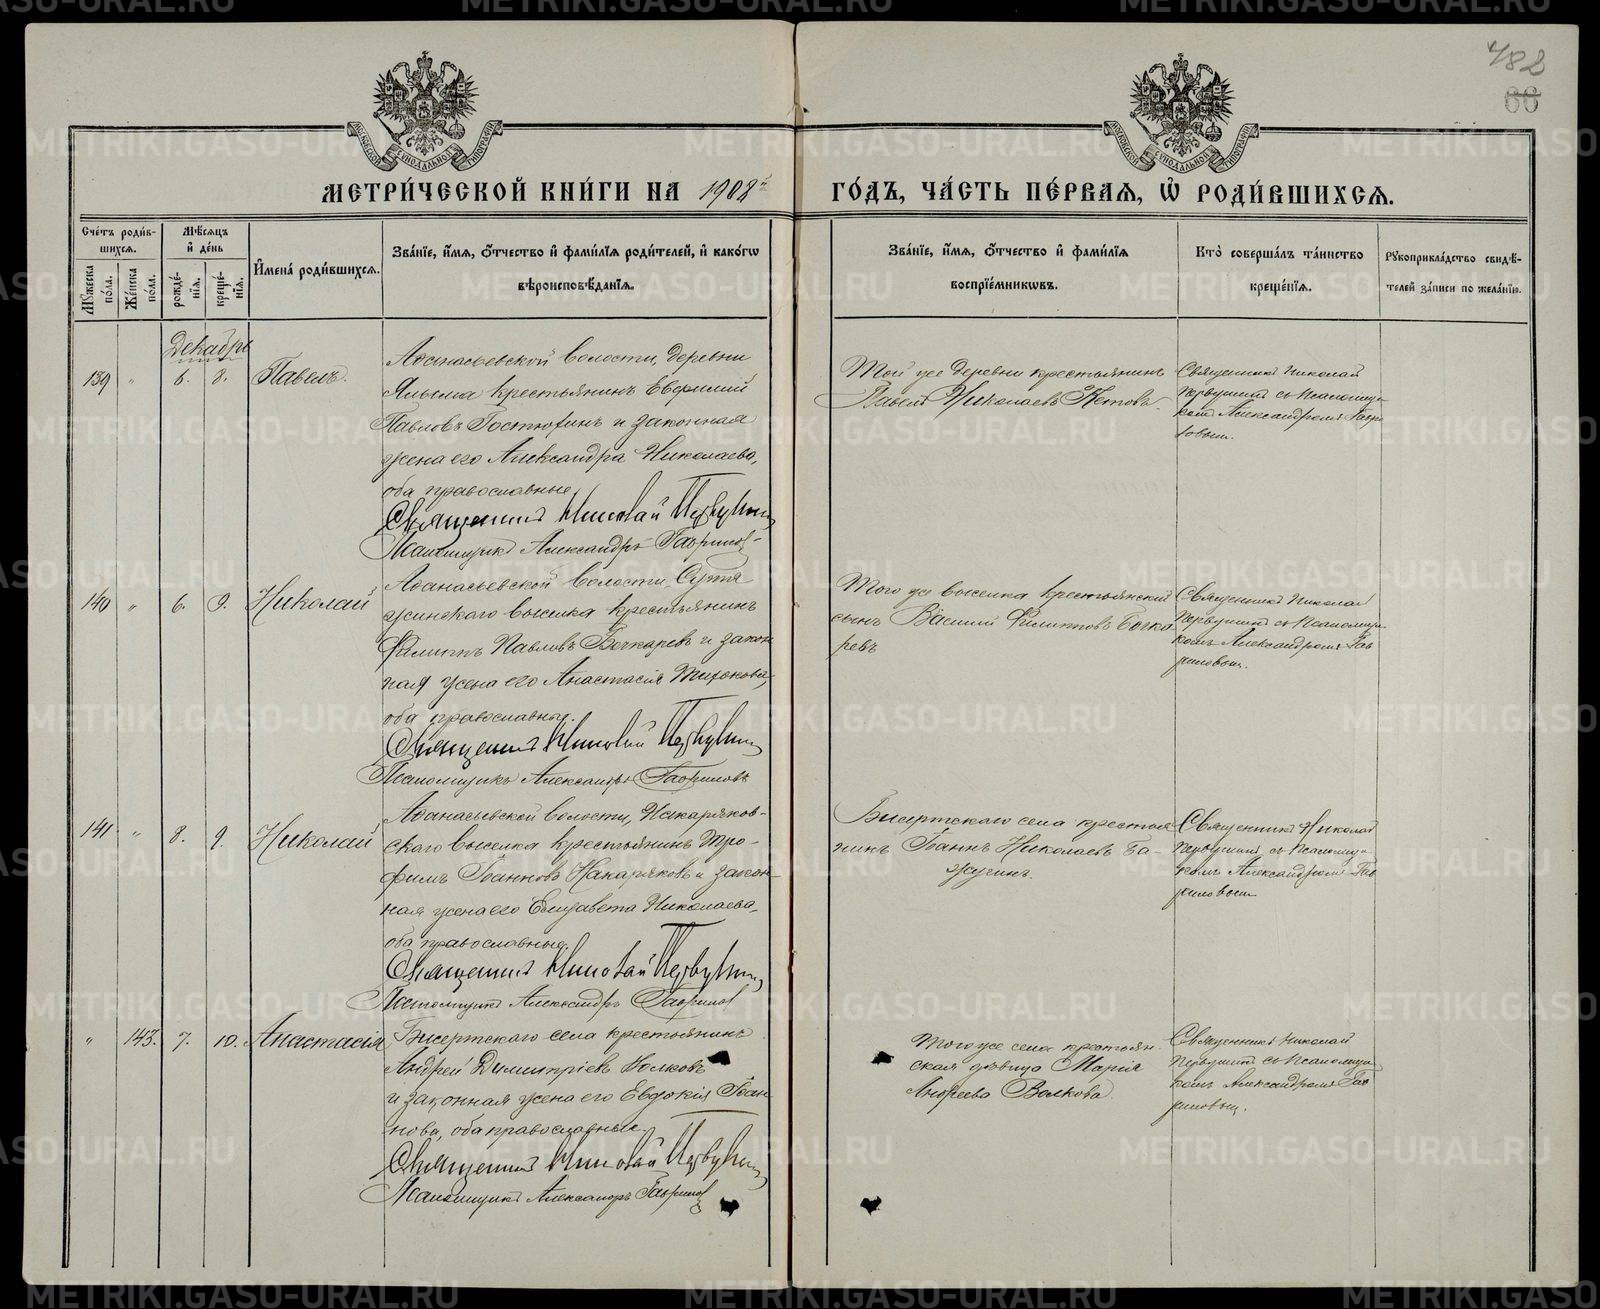 482
66
МЕТРИ́ЧЕСКОЙ КНИ́ГИ НА 1908й ГО́ДЪ, ЧА́СТЬ ПЕ́РВАЯ, Ѡ҆ РОДИ́ВШИХСЯ.
Сче́тъ роди́в-
шихся.
Му́жеска по́ла.
Же́нска по́ла.
Мѣ́сяцъ
и҆ де́нь
рожде́-
нїя.
креще́-
нїя.
И҆мена̀ роди́вшихся.
Зва́нїе, и҆́мя, ѻ҆́тчество и҆ фами́лїя роди́телей, и҆ како́гѡ
вѣроисповѣ́данїя.
Зва́нїе, и҆́мя, ѻ҆́тчество и҆ фами́лїя
воспрїе́мниковъ.
Кто̀ соверша́лъ та́инство
креще́нїя.
Рꙋкоприкла́дство свидѣ́-
телей за́писи по жела́нїю.
Декабрь
139 " 6. 8. Павелъ.
Аѳанасьевской волости, деревни
крестьянинъ Евфимій
Павловъ Гостюхинъ и законная
жена его Александра Николаева,
оба православные.
Священникъ Николай Первушинъ
Псаломщикъ Александръ Гавриловъ
Той же деревни крестьянинъ
Павелъ Николаевъ
Священникъ Николай
Первушинъ съ Псаломщи-
комъ Александромъ Гаври-
ловымъ.
140 " 6. 9. Николай
Аѳанасьевской волости,
выселка крестьянинъ
Филиппъ Павловъ Бочкаревъ и закон-
ная жена его Анастасія Тихонова,
оба православные.
Священникъ Николай Первушинъ
Псаломщикъ Александръ Гавриловъ
Того же выселка крестьянскій
сынъ Василій Филипповъ Бочка-
ревъ
Священникъ Николай
Первушинъ съ Псаломщи-
комъ Александромъ Гав-
риловымъ.
141 " 8. 9. Николай
Аѳанасьевской волости, Накаряков-
скаго выселка крестьянинъ Тро-
фимъ Іоанновъ Накаряковъ и закон-
ная жена его Елизавета Николаева,
оба православные.
Священникъ Николай Первушинъ
Псаломщикъ Александръ Гавриловъ
Бисертскаго села крестья-
нинъ Іоаннъ Николаевъ Ба-
жугинъ.
Священникъ Николай
Первушинъ съ Псаломщи-
комъ Александромъ Гав-
риловымъ
" 143. 7. 10. Анастасія
Бисертскаго села крестьянинъ
Андрей Димитріевъ Волковъ
и законная жена его Евдокія Іоан-
нова, оба православные.
Священникъ Николай Первушинъ
Псаломщикъ Александръ Гавриловъ
Того же села крестьян-
ская дѣвица Марія
Андреева Волкова.
Священникъ Николай
Первушинъ съ Псаломщи-
комъ Александромъ Гав-
риловымъ.
METRIKI.GASO-URAL.RU